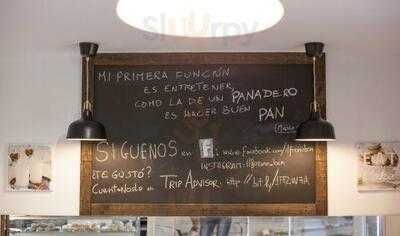 Slurrpy
MI PRIMERA FUNCIÓN
ES ENTRETENER,
COMO LA DE UN PANADERO
ES HACER BUEN PAN
SIGUENOS en f : www.Facebook.com/
INSTAGRAM:
¿TE GUSTÓ?
Cuentanoslo en TRIP ADVISOR: